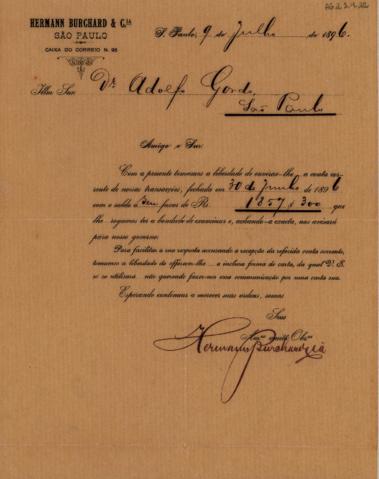 HERMANN BURCHARD & Cia
SÃO PAULO
CAIXA DO CORREIO N. 95
S. Paulo, 9 de Julho de 1896.
Illm Snr. Dr Adolfo Gordo
São Paulo
Amigo e Snr.
Com a presente tomamos a liberdade de enviar-lhe a conta cor-
rente de nossas transacções, fechada em 30 de Junho de 1896
com o saldo a Seu favor de Rs. 1:357$300 que
lhe rogamos ter a bondade de examinar e, achando-a exacta, nos avisará
para nosso governo.
Para facilitar a sua resposta accusando a recepção da referida conta corrente,
tomamos a liberdade de offerecer-lhe a inclusa forma de carta, da qual V. S.
se se utilisará não querendo fazer-nos essa communicação por uma carta sua.
Esperando continuar a merecer suas ordens, somos
Seus
Hermann Burchard & Cia